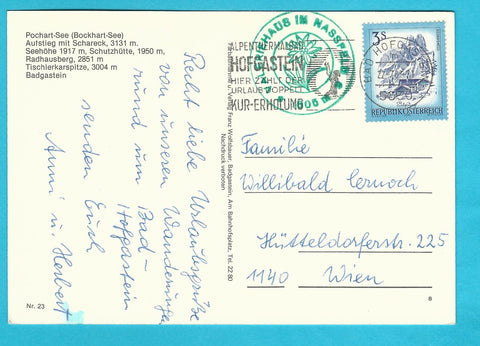 Pochart-See (Bockhart-See)
Aufstieg mit Schareck, 3131 m.
Seehöhe 1917 m, Schutzhütte, 1950 m,
Radhausberg, 2851 m
Tischlerkarspitze, 3004 m
Badgastein
Recht liebe Urlaubsgrüße
von unseren Wanderungen
rund um Bad-
Hofgastein
senden Euch
Anni u. Herbert
Nr. 23
Verlag Franz Wolfsbauer, Badgastein, Am Bahnhofsplatz, Tel. 22 80
Nachdruck verboten
ALPENTHERMALBAD
HOFGASTEIN
HIER ZÄHLT DER
URLAUB DOPPELT
KUR-ERHOLUNG
IM NASSFELD
1605 m
BAD HOFGASTEIN
5630
3S
REPUBLIK ÖSTERREICH
Familie
Willibald Cernoch
Hütteldorferstr. 225
1140 Wien
8